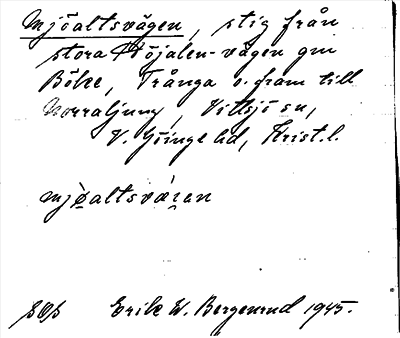 Mjöaltsvägen, stig från
stora Höjalen-vägen gm
Böke, Trånga o. fram till
Norraljung, Vittsjö sn,
V. Göinge hd, Krist. l.
mjøaltsvæ̀ran
SOS Erik W. Bergenrud 1945.